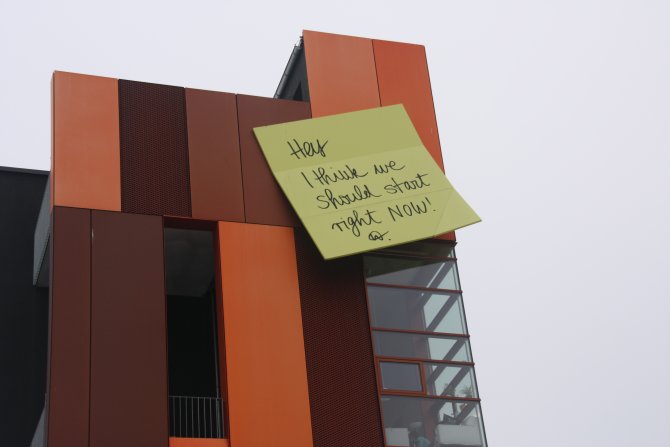 Hey
I think we
should start
right NOW!